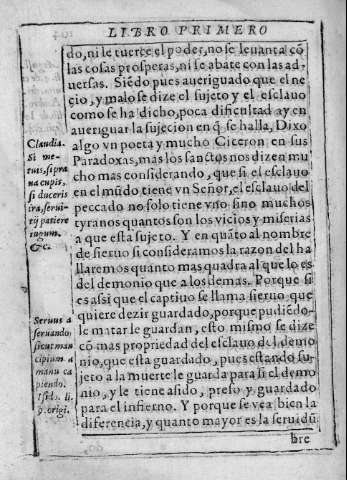 LIBRO PRIMERO
do, ni le tuerce el poder, no se leuanta cõ
las cosas prosperas, ni se abate con las ad-
uersas. Siẽdo pues aueriguado que el ne
cio, y malo se dize el sujeto y el esclauo
como se ha dicho, poca dificultad ay en
aueriguar la sujecion en q̃ se halla, Dixo
algo vn poeta y mucho Ciceron en sus
Paradoxas, mas los sanctos nos dizen mu
cho mas considerando, que si el esclauo
en el mũdo tiene vn Señor, el esclauo del
peccado no solo tiene vno sino muchos
tyranos quantos son los vicios y miserias
a que esta sujeto. Y en quãto al nombre
de sieruo si consideramos la razon del ha
llaremos quanto mas quadra al que lo es
del demonio que a los demas. Porque si
es assi que el captiuo se llama sieruo que
quiere dezir guardado, porque pudiẽdo-
le matar le guardan, esto mismo se dize
cõ mas propriedad del esclauo del demo
nio, que esta guardado, pues estando su-
jeto a la muerte le guarda para si el demo
nio, y le tiene asido, preso y guardado
para el infierno. Y porque se vea bien la
diferencia, y quanto mayor es la seruidũ
bre
Claudia.
Si me-
tuis, si pra
ua cupis,
si duceris
ira, serui-
tij patiere
iugum.
&c.
Seruus a
seruando,
sicut man
cipium a
manu ca
piendo.
Isido. li.
p. origi.